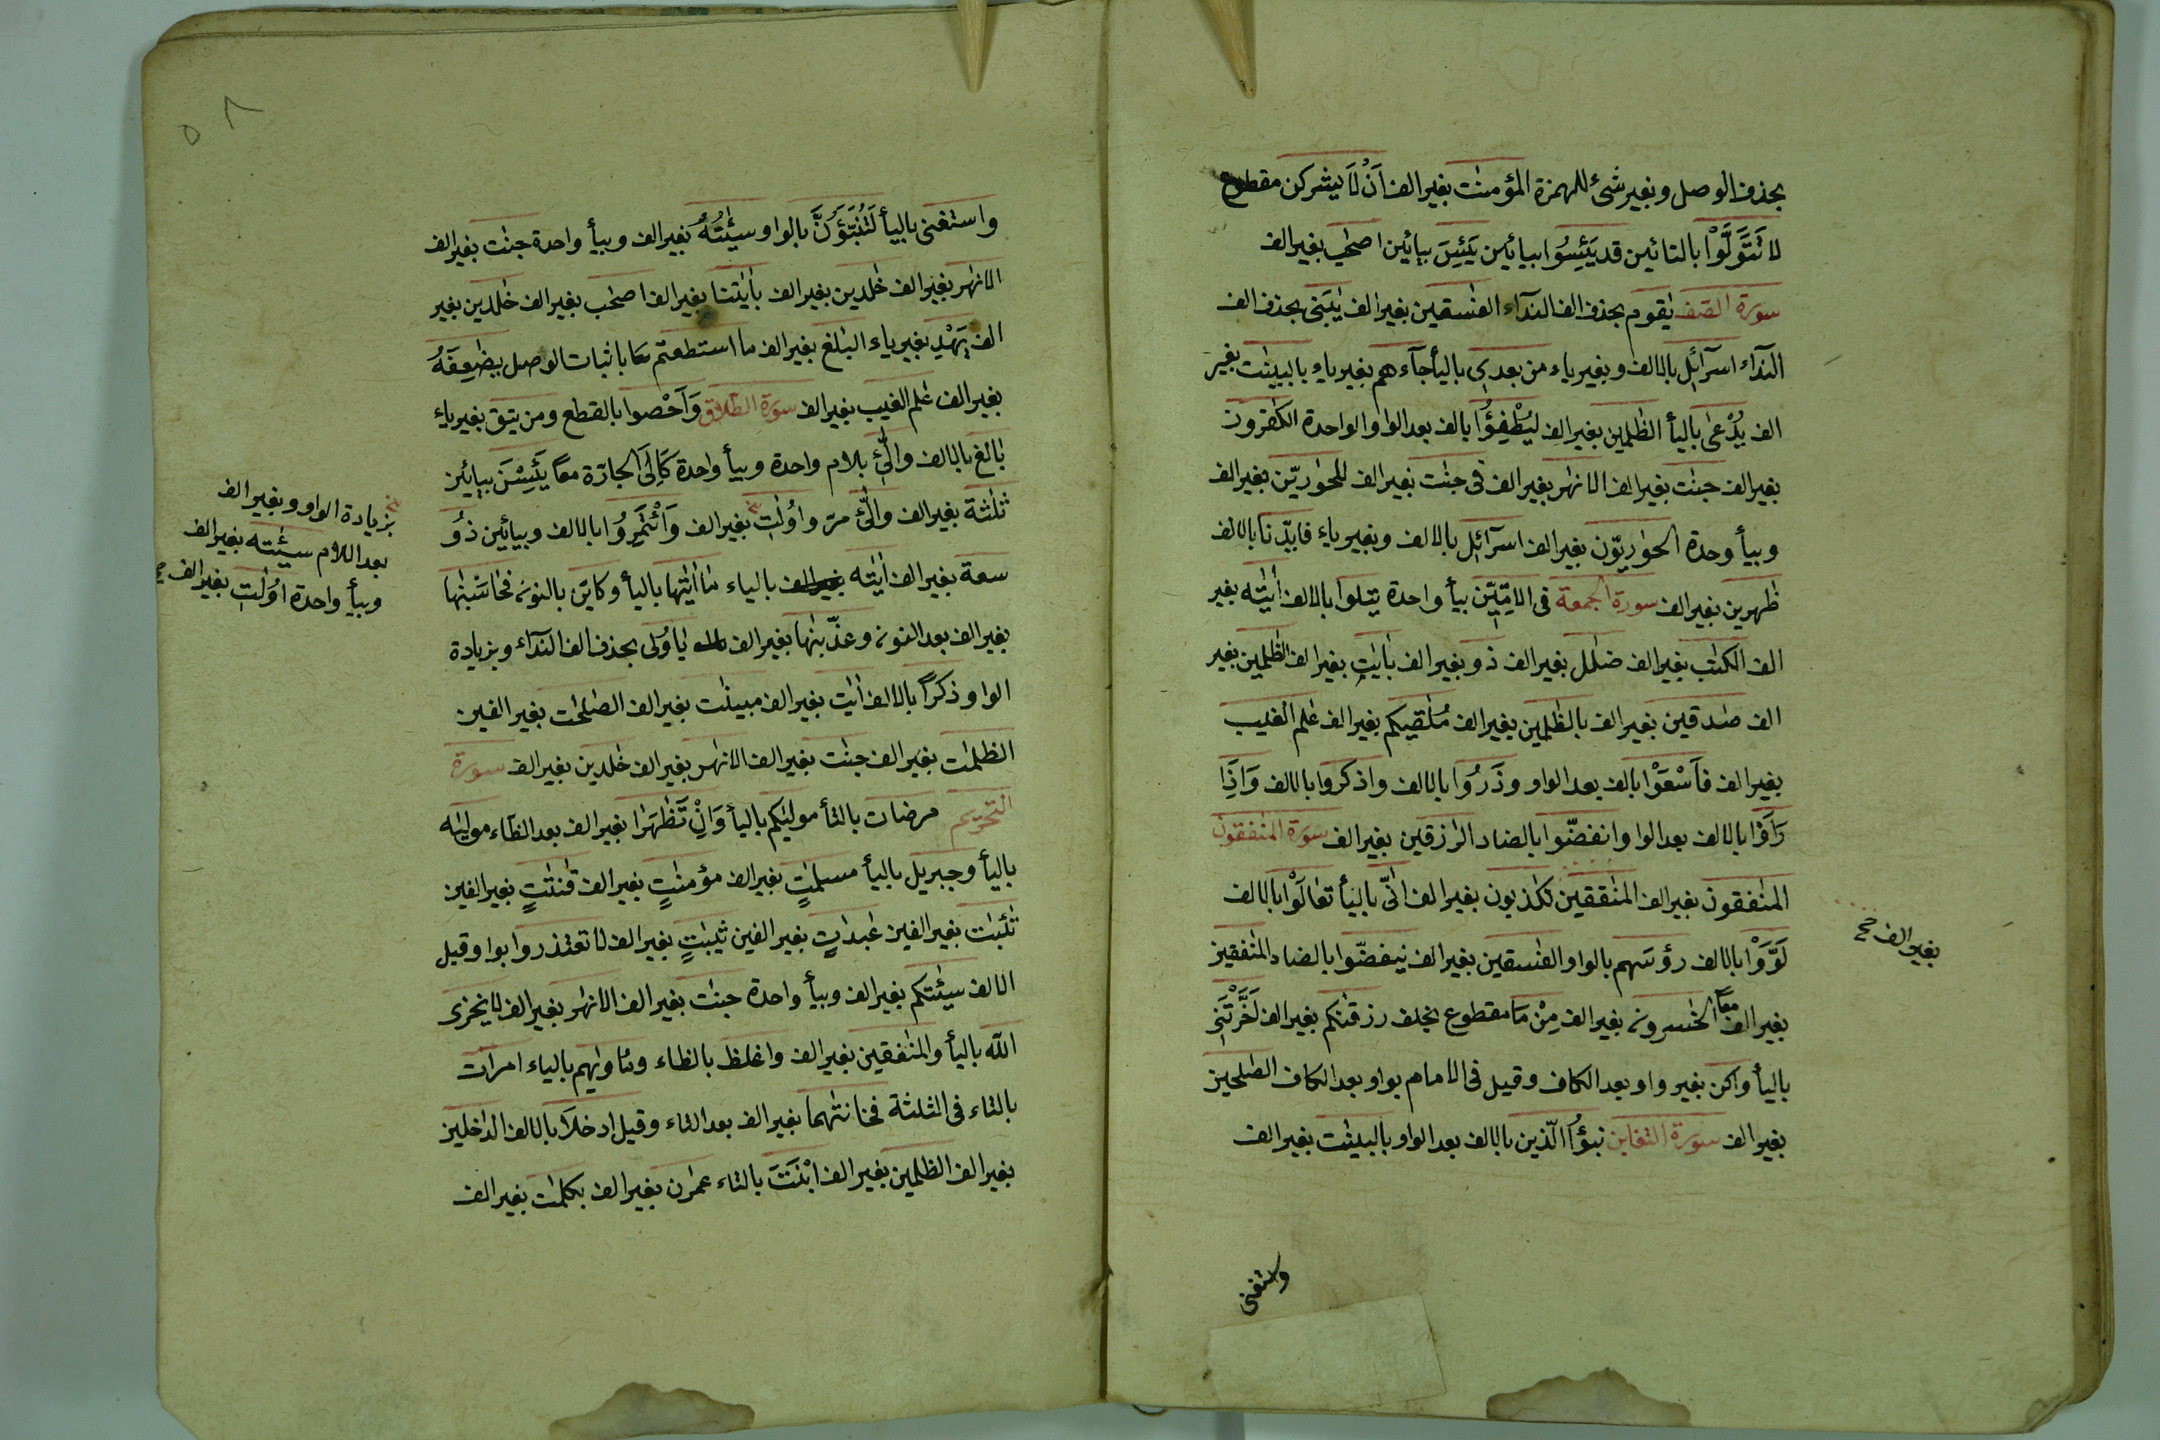 بحذف الوصل وبغير شئ للهمزة المؤمنٰت بغير الف اَنْ لَا يشركن مقطوع
لا تَتَوَلَّوْا بالتائين قد يَئِسُوا بيائين يَئِسَ بيائين اصحٰب بغير الف
سورة الصف يٰقوم بحذف الف الندآء الفٰسقين بغير الف يٰبَنى بحذف الف
الندآء اسرآئل بالالف وبغير ياء من بعدى باليأ جآءهم بغير ياء بالبينٰت بغير
الف يُدْعى باليأ الظٰلمين بغير الف لِيُطْفِؤُا بالف بعد الواو الواحدة الكٰفرون
بغير الف جنٰت بغير الف الانهٰر بغير الف فى جنٰت بغير الف للحوٰريّن بغير الف
وبيأ وحدة الحوٰريّون بغير الف اسرآئل بالالف وبغير ياء فايّدنا بالالف
ظٰهرين بغير الف سورة الجمعة فى الامّيّن بيأ واحدة يتلوا بالالف اٰيٰته بغير
الف الكتٰب بغير الف ضلٰل بغير الف ذو بغير الف باٰيٰت بغير الف الظٰلمين بغير
الف صٰدقين بغير الف بالظٰلمين بغير الف مُلٰقيكم بغير الف عٰلم الغيب
بغير الف فَاسْعَوْا بالف بعد الواو وذَرُوا بالالف واذكروا بالالف وَاِذَا
رَاَوْا بالالف بعد الواو انفضّوا بالضاد الرٰزقين بغير الف سورة المنٰفقون
المنٰفقون بغير الف المنٰفقين لكٰذبون بغير الف انّى باليأ تعالَوْا بالالف
لَوَّوْا بالالف رؤسَهم بالواو الفٰسقين بغير الف ينفضّوا بالضاد المنٰفقين
بغير الف معًا الخٰسرون بغير الف مِنْ مَا مقطوع بخلف رزقنٰكم بغير الف اَخَّرْتَنى
باليأ واكن بغير واو بعد الكاف وقيل فى الامام بواو بعد الكاف الصٰلحين
بغير الف سورة التغابن نبؤُا الّذين بالالف بعد الواو بالبينٰت بغير الف
بغير الف صح
واستغنى
٥٨
واستغنى باليأ لَتُنَبَّؤُنَّ بالواو سيئٰتُهُ بغير الف وبيأ واحدة جنٰت بغير الف
الانهٰر بغير الف خٰلدين بغير الف باٰيٰتنا بغير الف اصحٰب بغير الف خٰلدين بغير
الف يَهْدِ بغير ياء البلٰغ بغير الف ما استطعتم باثبات الوصل يضٰعِفهُ
بغير الف عٰلم الغيب بغير الف سورة الطلاق وَاَحْصوا بالقطع ومن يتق بغير ياء
بَالغ بالالف والّٰئ بلام واحدة وبيأ واحدة كَاِلَى الجارّة معًا يَئِسْنَ بيائين
ثلٰثة بغير الف والّٰئ مرّ واوُلٰت بغير الف وَأْتَمِرُوا بالالف وبيائين ذوُ
سعة بغير الف اٰتٰيه بغير الف بالياء مَا اٰتٰيها باليأ وكايّن بالنون فحاسَبْنٰها
بغير الف بعد النون وعذّبنٰها بغير الف يٰاُولى بحذف الف الندآء وبزيادة
الواو ذكرًا بالالف اٰيٰت بغير الف مبينٰت بغير الف الصٰلحٰت بغير الفين
الظلمٰت بغير الف جنٰت بغير الف الانهٰر بغير الف خٰلدين بغير الف سورة
التحريم مرضات بالتأ موليٰكم باليأ وَاِنْ تَظٰهَرَا بغير الف بعد الظآء موليٰه
باليأ وجبريل باليأ مسلمٰتٍ بغير الف مؤمنٰتٍ بغير الف قٰنتٰتٍ بغير الفين
تٰئبٰت بغير الفين عٰبدٰتٍ بغير الفين ثيبٰتٍ بغير الف لا تعتذروا بواو قيل
الالف سيئٰتكم بغير الف وبيأ واحدة جنٰت بغير الف الانهٰر بغير الف لا يخزى
الله باليأ والمنٰفقين بغير الف واغلظ بالظاء ومأويٰهم بالياء امرات
بالتاء فى الثلثة فخانتٰهما بغير الف بعد التاء وقيل ادخلَا بالالف الدٰخلين
بغير الف الظٰلمين بغير الف ابْنَتَ بالتاء عمرٰن بغير الف بكلمٰت بغير الف
بزيادة الواو وبغير الف
بعد اللام سيئٰته بغير الف
وبيأ واحدة اوُلٰت بغير الف صح